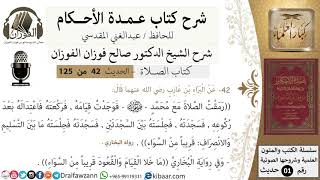 شرح كتاب عمدة الأحكام
للحافظ / عبدالغني المقدسي
شرح الشيخ الدكتور صالح فوزان الفوزان
كتاب الصلاة - الحديث 42 من 125
42- عَنِ البَرَاءِ بنِ عَازِبٍ رضي الله عنهما قال:
((رَمَقْتُ الصَّلاةَ مَعَ مُحَمَّدٍ ﷺ، فَوَجَدْتُ قِيَامَهُ، فَرَكْعَتَهُ فَاعْتِدَالَهُ بَعْدَ
رُكُوعِهِ، فَسَجْدَتَهُ، فَجِلْسَتَهُ بَيْنَ السَّجْدَتَيْنِ، فَسَجْدَتَهُ فَجِلْسَتَهُ مَا بَيْنَ التَّسْلِيمِ
وَالانْصِرَافِ: قَرِيباً مِنَ السَّوَاءِ)). رواه البخاري.
- وفي رِوَايَةِ البُخَارِيِّ ((مَا خَلا القِيَامَ وَالْقُعُودَ قَرِيباً مِنَ السَّوَاءِ)).
سلسلة الكتب والمتون
العلمية وشروحها الصوتية
رقم 01 حديث
الفوزان
+965-99119331
DraIfawzann